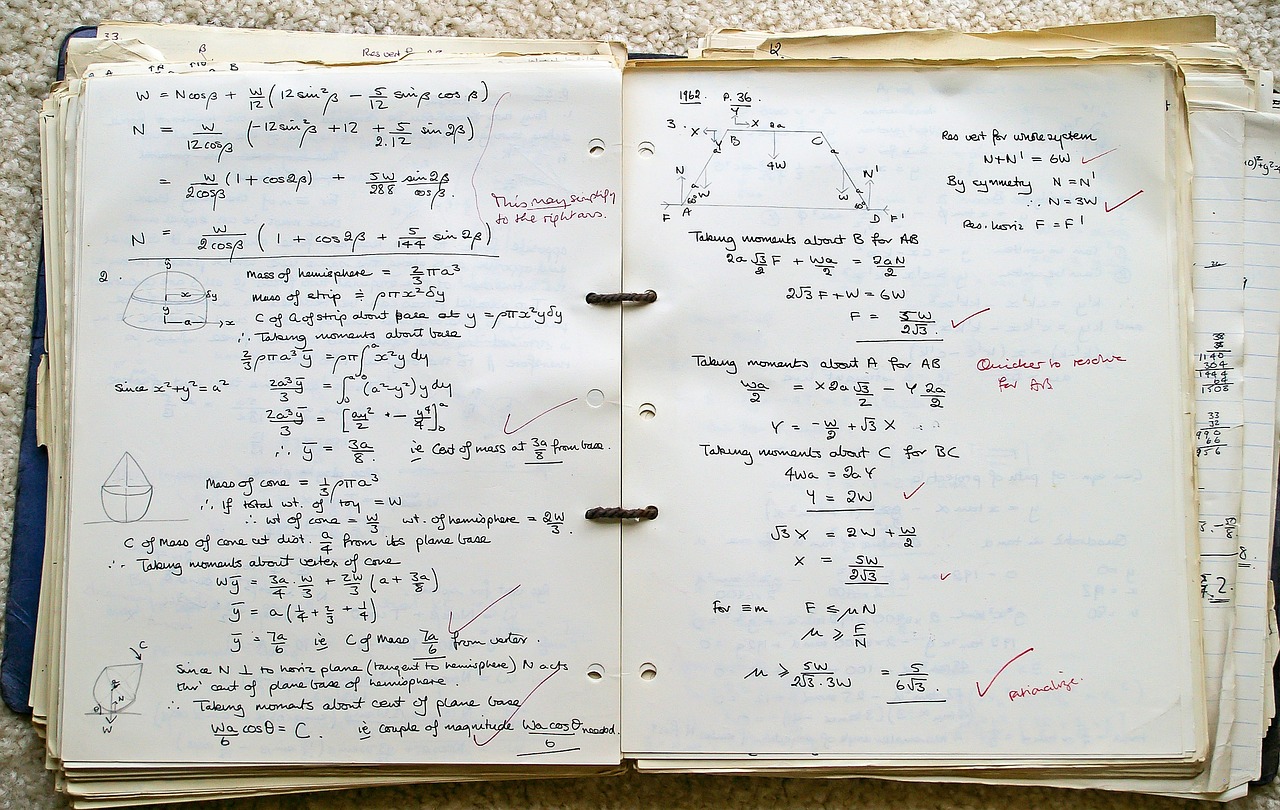 33.
β
Res vert
B
W = Ncosβ + W/12 (12 sin²β − 5/12 sinβ cosβ)
N = W/12cosβ (−12sin²β + 12 + 5/2.12 sin 2β)
= W/2cosβ (1 + cos2β) + 5W/288 sin2β/cosβ.
This may simplify
to the right ans.
N = W/2cosβ (1 + cos 2β + 5/144 sin 2β)
2.
Mass of hemisphere = 2/3 πa³
Mass of strip ≑ ρπx²δy
C of G of strip about base at y = ρπx²yδy
∴ Taking moments about base
2/3 ρπa³ȳ = ρπ∫₀ᵃ x²y dy
Since x²+y²=a² 2a³ȳ/3 = ∫₀ᵃ (a²−y²) y dy
2a³ȳ/3 = [ay²/2 − y⁴/4]₀ᵃ
∴ ȳ = 3a/8 ie Cent of mass at 3a/8 from base.
Mass of cone = 1/3 ρπa³
∴ If total wt. of toy = W
∴ wt of cone = W/3 wt. of hemisphere = 2W/3.
C of Mass of cone at dist. a/4 from its plane base
∴ Taking moments about vertex of cone
Wȳ = 3a/4 . W/3 + 2W/3 (a + 3a/8)
ȳ = a(1/4 + 2/3 + 1/4)
ȳ = 7a/6 ie C of Mass 7a/6 from vertex.
C
θ
N
W
Since N ⊥ to horiz plane (tangent to hemisphere) N acts
thro' cent of plane base of hemisphere.
∴ Taking moments about cent of plane base
Wa/6 cosθ = C. ie couple of magnitude Wa cosθ/6 needed.
12.
1962. P. 36.
3.
Y
X X 2a
Y B C
a a
4W
N N'
a a
W W
60° 60°
F A D F'
Res vert for whole system
N+N' = 6W
By symmetry N = N'
∴ N = 3W
Res. horiz F = F'
Taking moments about B for AB
2a √3/2 F + Wa/2 = 2aN/2
2√3 F + W = 6W
F = 5W/2√3.
Taking moments about A for AB
Quicker to resolve
for AB
Wa/2 = X 2a √3/2 − Y 2a/2
Y = −W/2 + √3 X
Taking moments about C for BC
4Wa = 2aY
Y = 2W
√3 X = 2W + W/2
X = 5W/2√3
For ≡m F ≤ μN
μ ≥ F/N
μ ≥ 5W/2√3.3W = 5/6√3.
rationalize.
38
38
1140
304
1444
64
1508
33
32
990
66
956